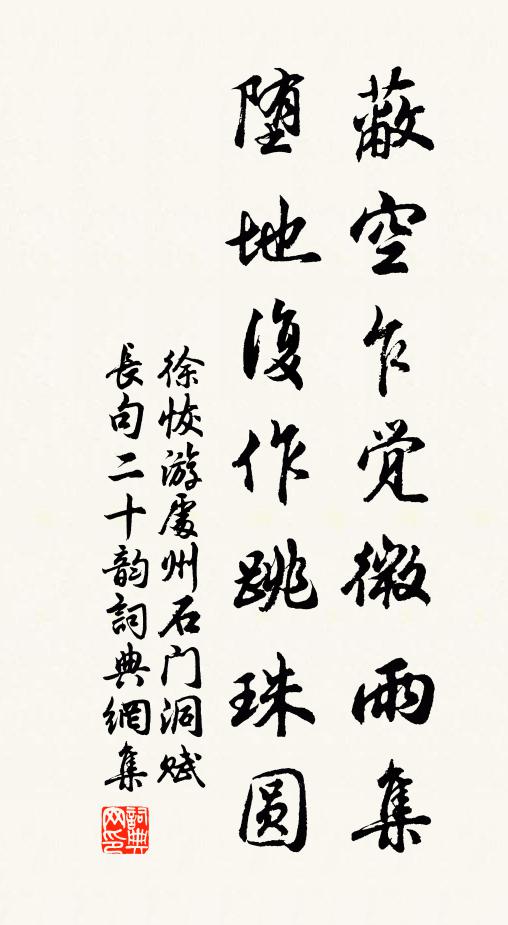 蔽空乍觉微雨集
堕地復作跳珠圆
徐恢游處州石门洞赋
長句二十韵詞典網集
詞典网印